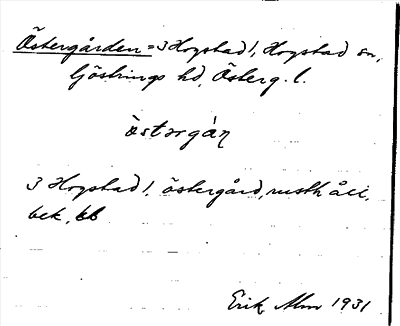 Östergården = 3 Hogstad 1, Hogstad sn,
Göstrings hd, Österg. l.
östərgán
3 Hogstad 1, östergård, rusth åli,
bek, bb
Erik Alm 1931